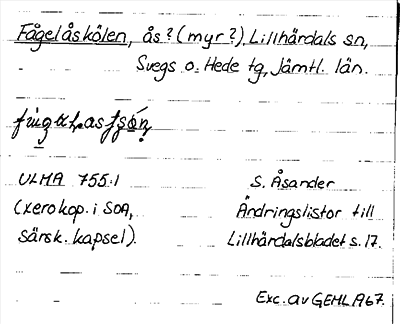 Fågelåskölen, ås? (myr?), Lillhärdals sn,
Svegs o. Hede tg, Jämtl. län.
ULMA 755:1
S. Åsander
(xerokop. i SOA,
Ändringslistor till
särsk. kapsel).
Lillhärdalsbladet s. 17.
Exc. av GEHL 1967.